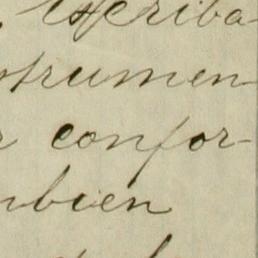 escriba
strumen
r confor-
mbien